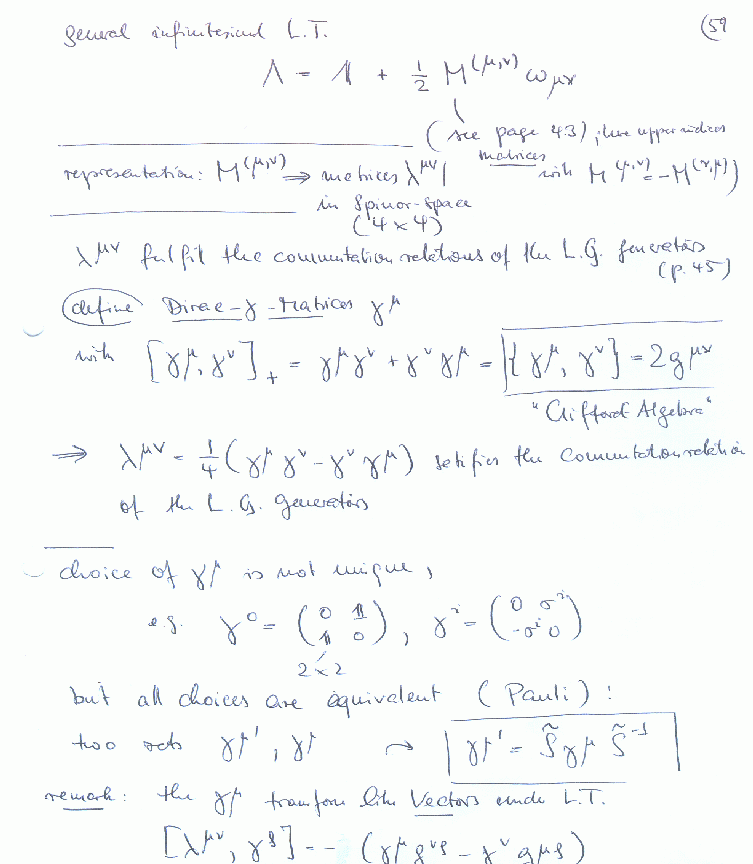 general infinitesimal L.T. (59
Λ = 1 + 1/2 M^(μ,ν) ω_μν
(see page 43), here upper indices
matrices with M^(μ,ν) = -M^(ν,μ))
representation: M^(μ,ν) ⇒ matrices λ^μν
in Spinor-Space
(4×4)
λ^μν fulfil the commutation relations of the L.G. generators
(p. 45)
define Dirac-γ-Matrices γ^μ
with [γ^μ, γ^ν]_+ = γ^μ γ^ν + γ^ν γ^μ = {γ^μ, γ^ν} = 2g^μν
"Clifford Algebra"
⇒ λ^μν = 1/4 (γ^μ γ^ν - γ^ν γ^μ) satifies the commutation relation
of the L.G. generators
choice of γ^μ is not unique,
e.g. γ^0 = (0 1; 1 0), γ^i = (0 σ^i; -σ^i 0)
2×2
but all choices are equivalent (Pauli):
two sets γ^μ', γ^μ → γ^μ' = S̃ γ^μ S̃^-1
remark: the γ^μ transform like Vectors under L.T.
[λ^μν, γ^ρ] = - (γ^μ g^νρ - γ^ν g^μρ)